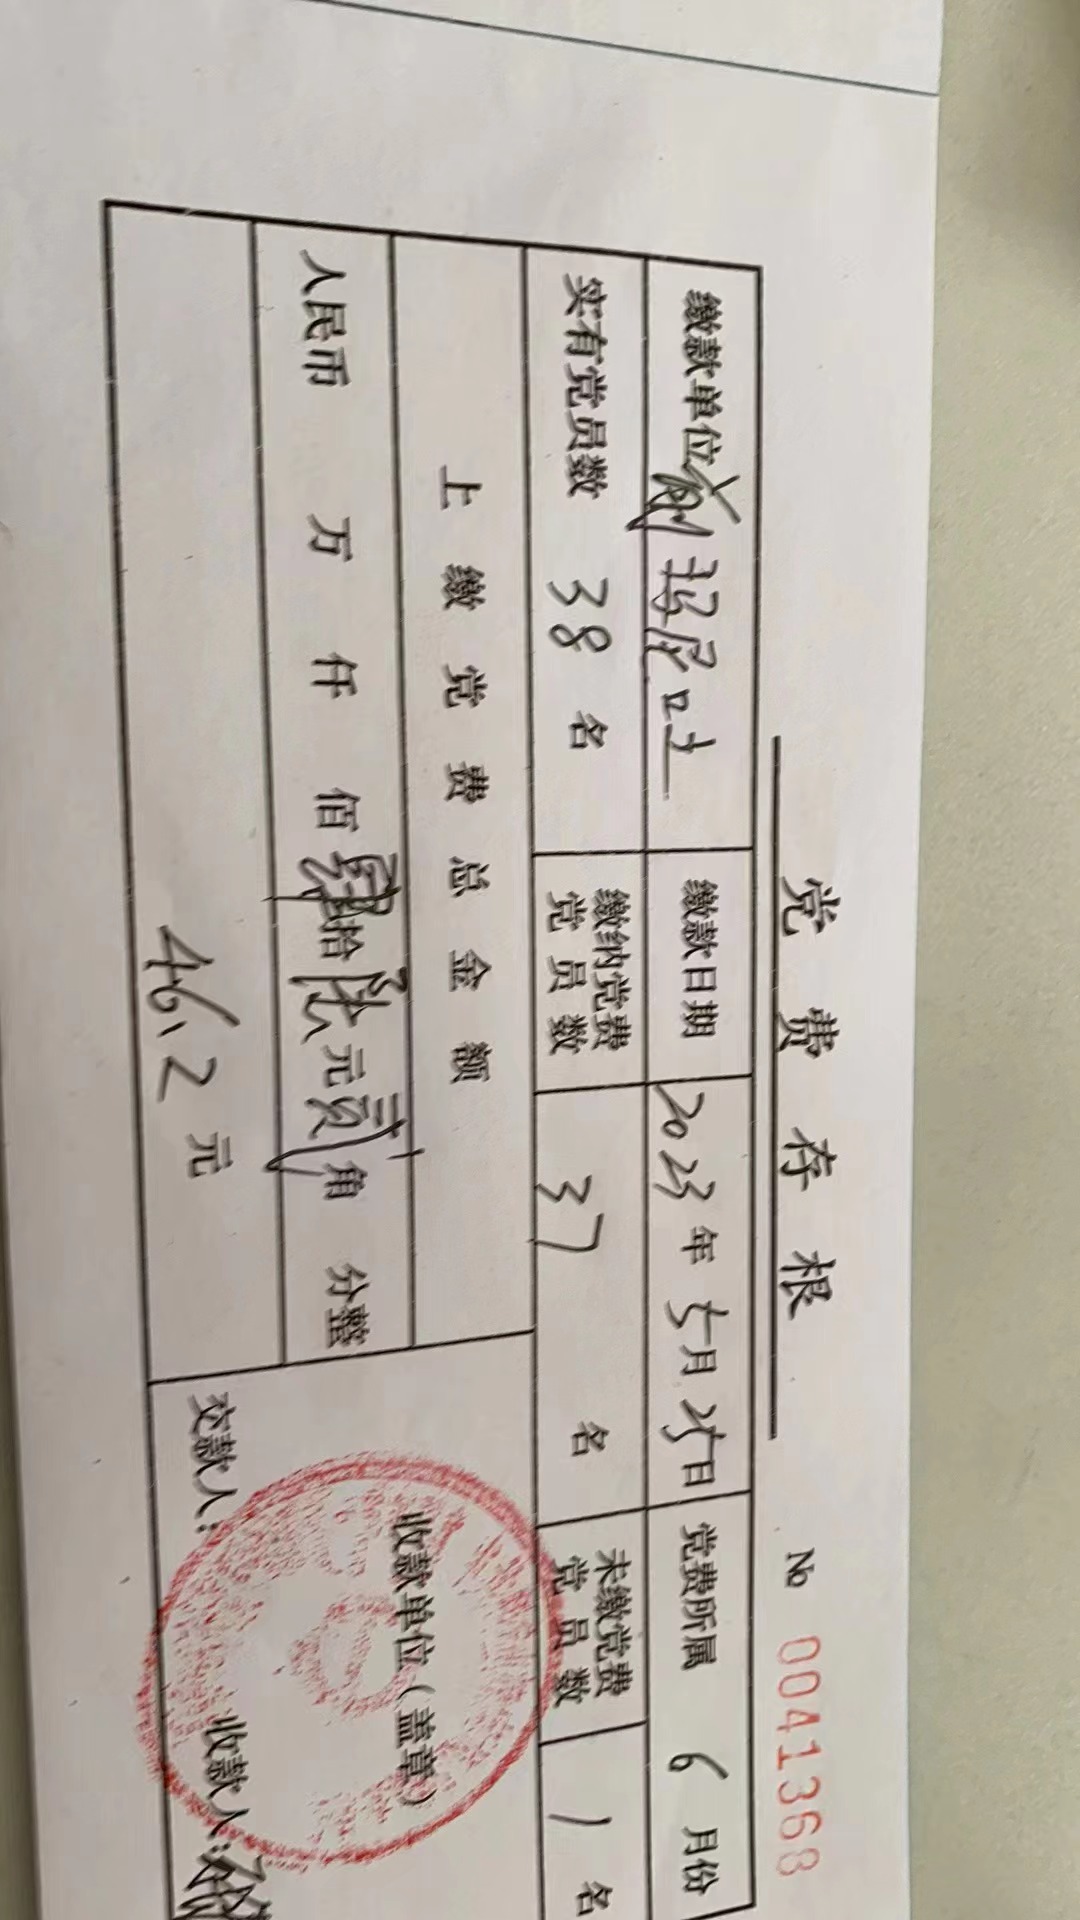 党费存根
No 0041368
缴款单位 缴款日期 2023年5月25日 党费所属 6月份
实有党员数 38名 缴纳党费党员数 37名 未缴党费党员数 1名
上缴党费总金额
人民币 万 仟 佰 肆拾陆元贰角 分整
收款单位（盖章）
46.2元
交款人： 收款人：